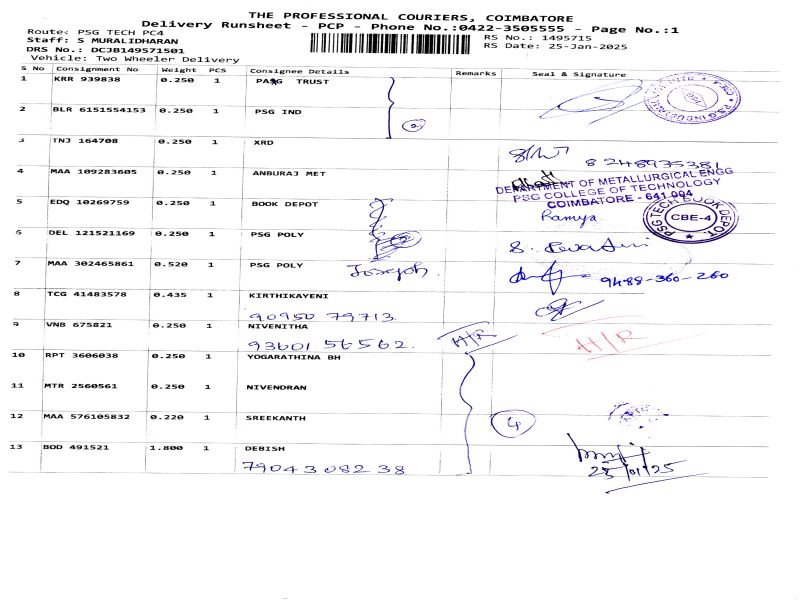 THE PROFESSIONAL COURIERS, COIMBATORE
Delivery Runsheet - PCP - Phone No.:0422-3505555 - Page No.:1
Route: PSG TECH PC4
RS No.: 1495715
Staff: S MURALIDHARAN
RS Date: 25-Jan-2025
DRS No.: DCJB149571501
Vehicle: Two Wheeler Delivery
S No Consignment No Weight PCS Consignee Details Remarks Seal & Signature
1 KRR 939838 0.250 1 PASG TRUST
2 BLR 6151554153 0.250 1 PSG IND
2
3 TNJ 164708 0.250 1 XRD
8248935381
4 MAA 109283605 0.250 1 ANBURAJ MET
DEPARTMENT OF METALLURGICAL ENGG
PSG COLLEGE OF TECHNOLOGY
COIMBATORE - 641 004
5 EDQ 10269759 0.250 1 BOOK DEPOT
Ramya
PSG TECH BOOK DEPOT
CBE-4
6 DEL 121521169 0.250 1 PSG POLY
7 MAA 302465861 0.520 1 PSG POLY
Joseph.
9488-360-260
8 TCG 41483578 0.435 1 KIRTHIKAYENI
90950 79713.
9 VNB 675821 0.250 1 NIVENITHA
93601 56562. H/R H/R
10 RPT 3606038 0.250 1 YOGARATHINA BH
11 MTR 2560561 0.250 1 NIVENDRAN
12 MAA 576105832 0.220 1 SREEKANTH
4
13 BOD 491521 1.800 1 DEBISH
79043 08238
25/01/25